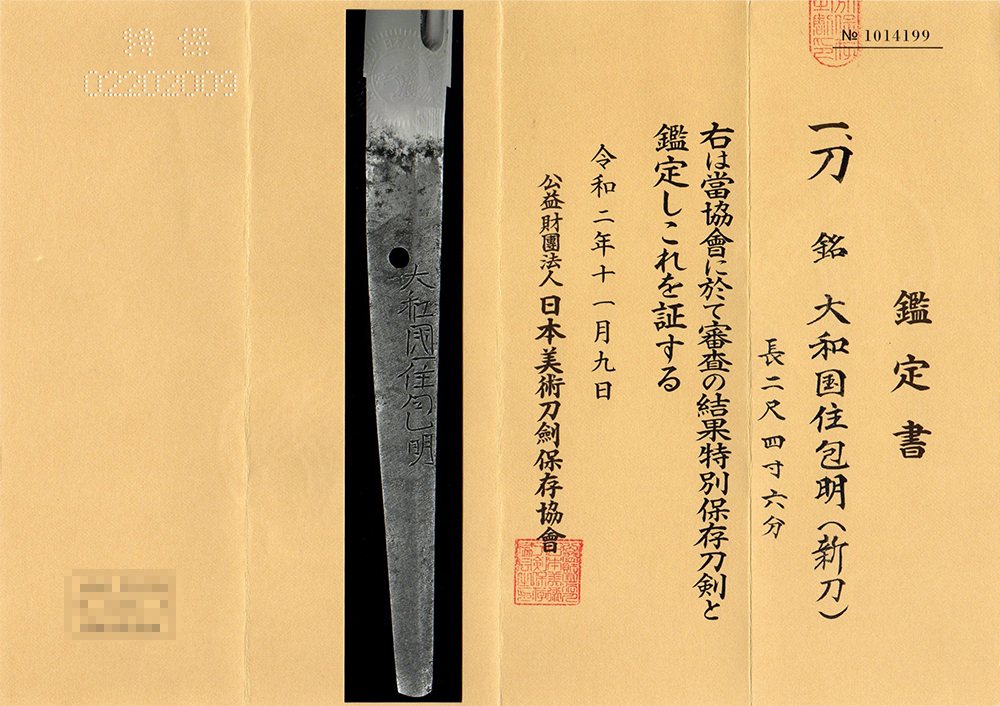 № 1014199
鑑定書
一、刀 銘 大和国住包明(新刀)
長二尺四寸六分
右は當協會に於て審査の結果特別保存刀剣と
鑑定しこれを証する
令和二年十一月九日
公益財團法人日本美術刀劍保存協會
大和國住包明
特保
02202009